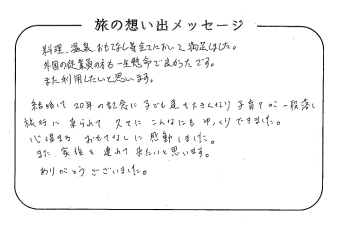 旅の想い出メッセージ
料理、温泉、おもてなし全てにおいて満足しました。
外国の従業員の方も一生懸命で良かったです。
また利用したいと思います。
結婚して20年の記念に子ども達も大きくなり子育ても一段落し
旅行に来られて久々にこんなにもゆっくりできました。
心温まるおもてなしに感動しました。
また、家族を連れて来たいと思います。
ありがとうございました。